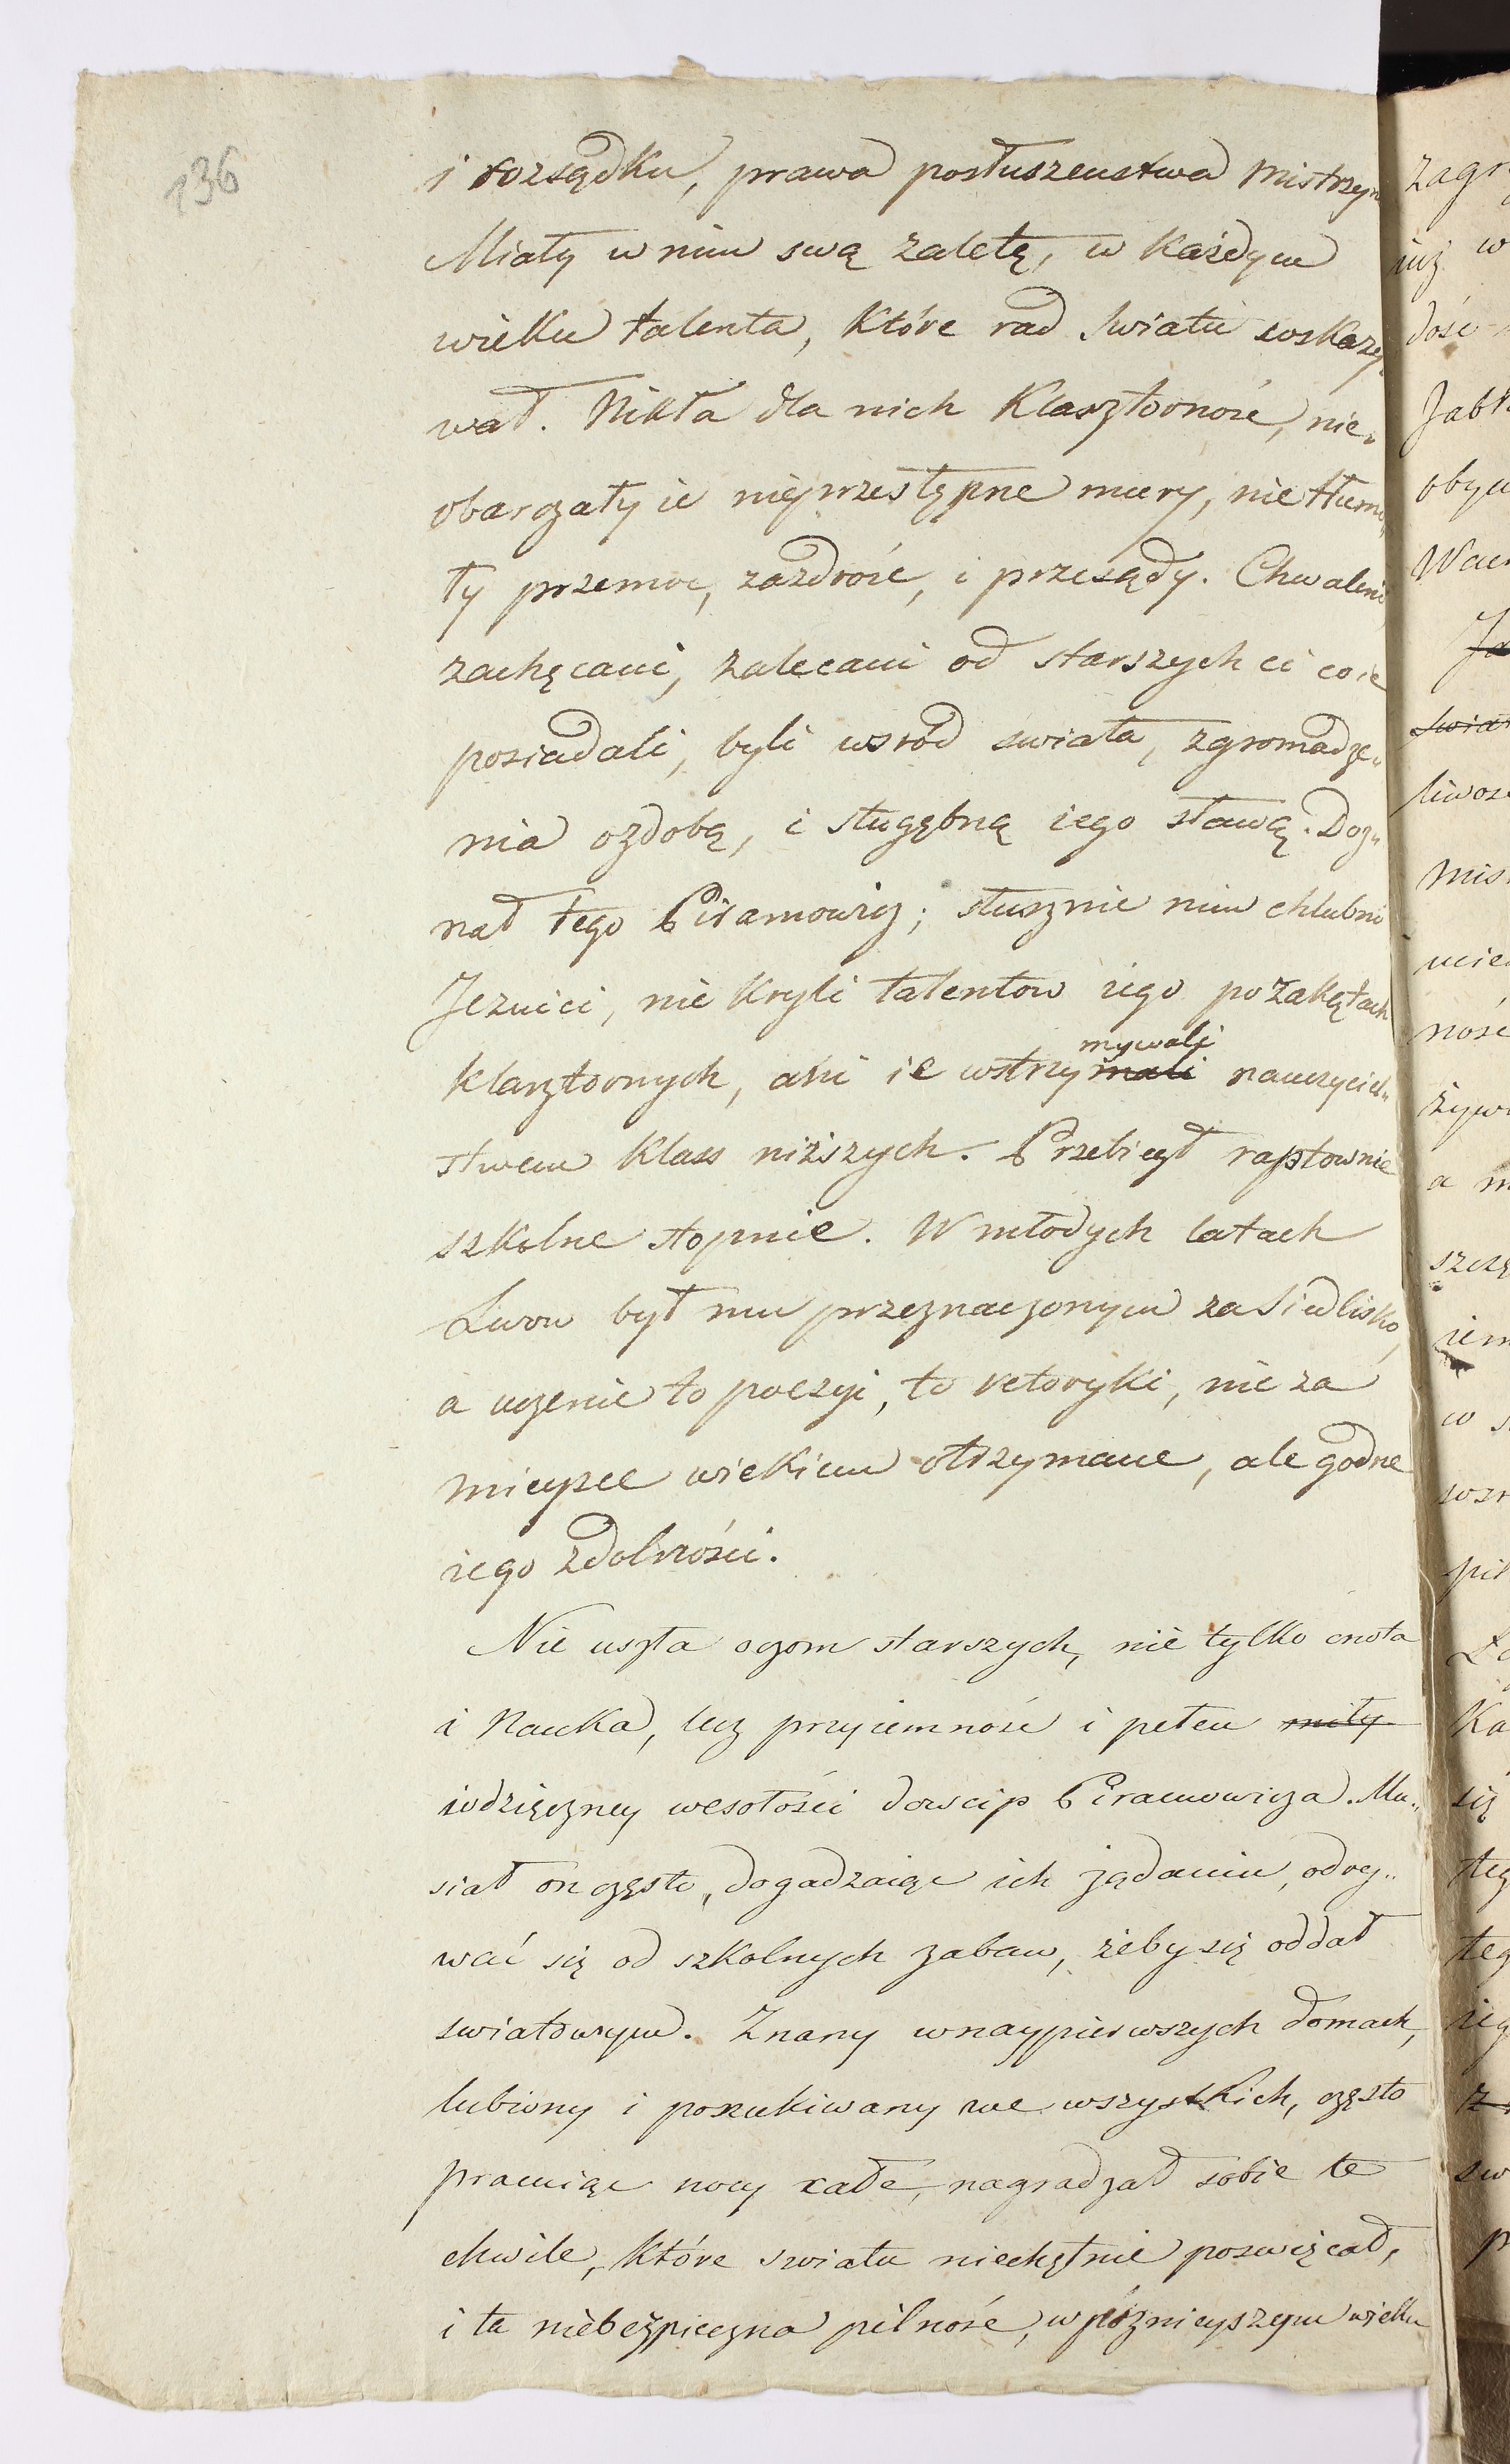 136
i rozsądku, prawa posłuszeństwa Mistrzyn
Miały w nim swą zaletę, w każdym
wieku talenta, które rad światu wskazy„
wał. Nikła dla nich Klasztorność, nie„
obarczały ie nieprzestępne mury, nie tłumi„
ły przemoc, zazdrość, i przesądy. Chwaleni
zachęcani, zalecani od starszych ci co ie
posiadali, byli wsród swiata, zgromadze„
nia ozdobą, i służebną iego sławą. Dozn
nał tego Piramowicz; słusznie nim chlubni
Jezuici, nie kryli talentow iego po zakątach
mywali
klasztornych, ani ie wstrzymali nauczyciel„
stwem Klass niższych. Przebiegł raptownie
szkolne stopnie. W młodych latach
Lwow był mu przeznaczonym za siedlisko,
a uczenie to poezyi, to retoryki, nie za
mieysce wiekiem otrzymane, ale godne
iego zdolności.
Nie uszła oczom starszych, nie tylko cnota
i Nauka, lecz przyiemność i pełen miły
wdzięczney wesołości dowcip Piramowicza. Mu„
siał on często, dogadzaiąc ich żądaniu, odry„
wać się od szkolnych zabaw, żeby się oddał
swiatowym. Znany w naypierwszych domach,
lubiony i poszukiwany we wszystkich, często
pracuiąc nocy całe, nagradzał sobie te
chwile, które swiatu niechętnie poswięcał,
i ta niebezpieczna pilność, w póznieyszym wieku
zagr
iuż w
dość
Jabł
obyw
Wac
Ja
świat
liwos
Mis
ucie
ność
żyw
a m
szczę
iem
w s
wzr
pil
Ka
się
teg
teg
ieg
z
sw